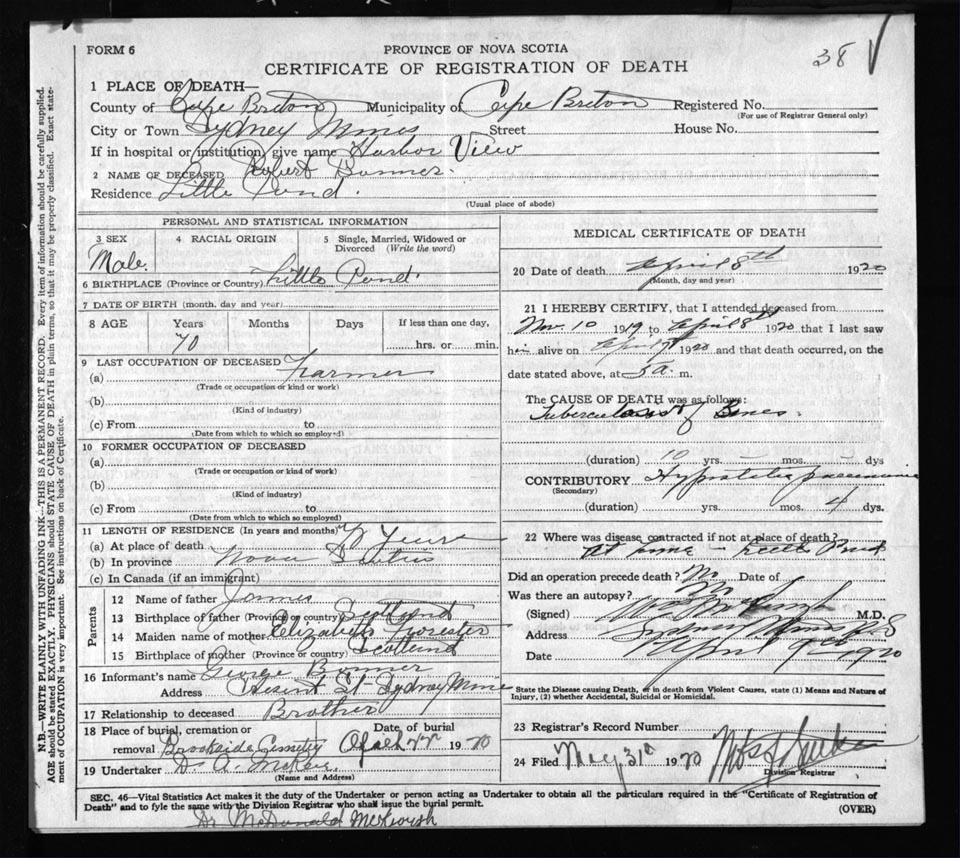 38 √
FORM 6
PROVINCE OF NOVA SCOTIA
CERTIFICATE OF REGISTRATION OF DEATH
N.B.—WRITE PLAINLY WITH UNFADING INK—THIS IS A PERMANENT RECORD. Every item of information should be carefully supplied.
AGE should be stated EXACTLY. PHYSICIANS should STATE CAUSE OF DEATH in plain terms, so that it may be properly classified. Exact state-
ment of OCCUPATION is very important. See instructions on back of Certificate.
1 PLACE OF DEATH—
County of Cape Breton Municipality of Cape Breton Registered No.
(For use of Registrar General only)
City or Town Sydney Mines Street House No.
If in hospital or institution, give name Harbor View
2 NAME OF DECEASED Robert Bonner.
Residence Little Pond.
(Usual place of abode)
PERSONAL AND STATISTICAL INFORMATION
3 SEX 4 RACIAL ORIGIN 5 Single, Married, Widowed or
Divorced (Write the word)
Male.
6 BIRTHPLACE (Province or Country) Little Pond.
7 DATE OF BIRTH (month, day and year)
8 AGE Years Months Days If less than one day,
70 hrs. or min.
9 LAST OCCUPATION OF DECEASED
(a) Farmer
(Trade or occupation or kind or work)
(b)
(Kind of industry)
(c) From to
(Date from which to which so employed)
10 FORMER OCCUPATION OF DECEASED
(a)
(Trade or occupation or kind of work)
(b)
(Kind of industry)
(c) From to
(Date from which to which so employed)
11 LENGTH OF RESIDENCE (In years and months)
(a) At place of death 70 Years
(b) In province Nova Scotia
(c) In Canada (if an immigrant)
Parents
12 Name of father James
13 Birthplace of father (Province or country) Scotland
14 Maiden name of mother Elizabeth
15 Birthplace of mother (Province or country) Scotland
16 Informant's name George Bonner
Address St Sydney Mines
17 Relationship to deceased Brother
18 Place of burial, cremation or Date of burial
removal Brookside Cemetery 1920
19 Undertaker
(Name and Address)
MEDICAL CERTIFICATE OF DEATH
20 Date of death April 8th 1920
(Month, day and year)
21 I HEREBY CERTIFY, that I attended deceased from
Nov. 10 1919 to April 8th 1920 that I last saw
him alive on April 7th 1920 and that death occurred, on the
date stated above, at 5 a. m.
The CAUSE OF DEATH was as follows:
Tuberculosis of Bones.
(duration) 10 yrs. — mos. — dys
CONTRIBUTORY Hypostatic pneumonia
(Secondary)
(duration) yrs. mos. 4 dys.
22 Where was disease contracted if not at place of death?
At home — Little Pond
Did an operation precede death? No Date of
Was there an autopsy? No
(Signed) M.D.
Address Sydney Mines N.S
Date April 9th 1920
State the Disease causing Death, or in death from Violent Causes, state (1) Means and Nature of
Injury, (2) whether Accidental, Suicidal or Homicidal.
23 Registrar's Record Number
24 Filed May 31st 1920
Division Registrar
SEC. 46—Vital Statistics Act makes it the duty of the Undertaker or person acting as Undertaker to obtain all the particulars required in the "Certificate of Registration of
Death" and to fyle the same with the Division Registrar who shall issue the burial permit. (OVER)
Dr McDonald